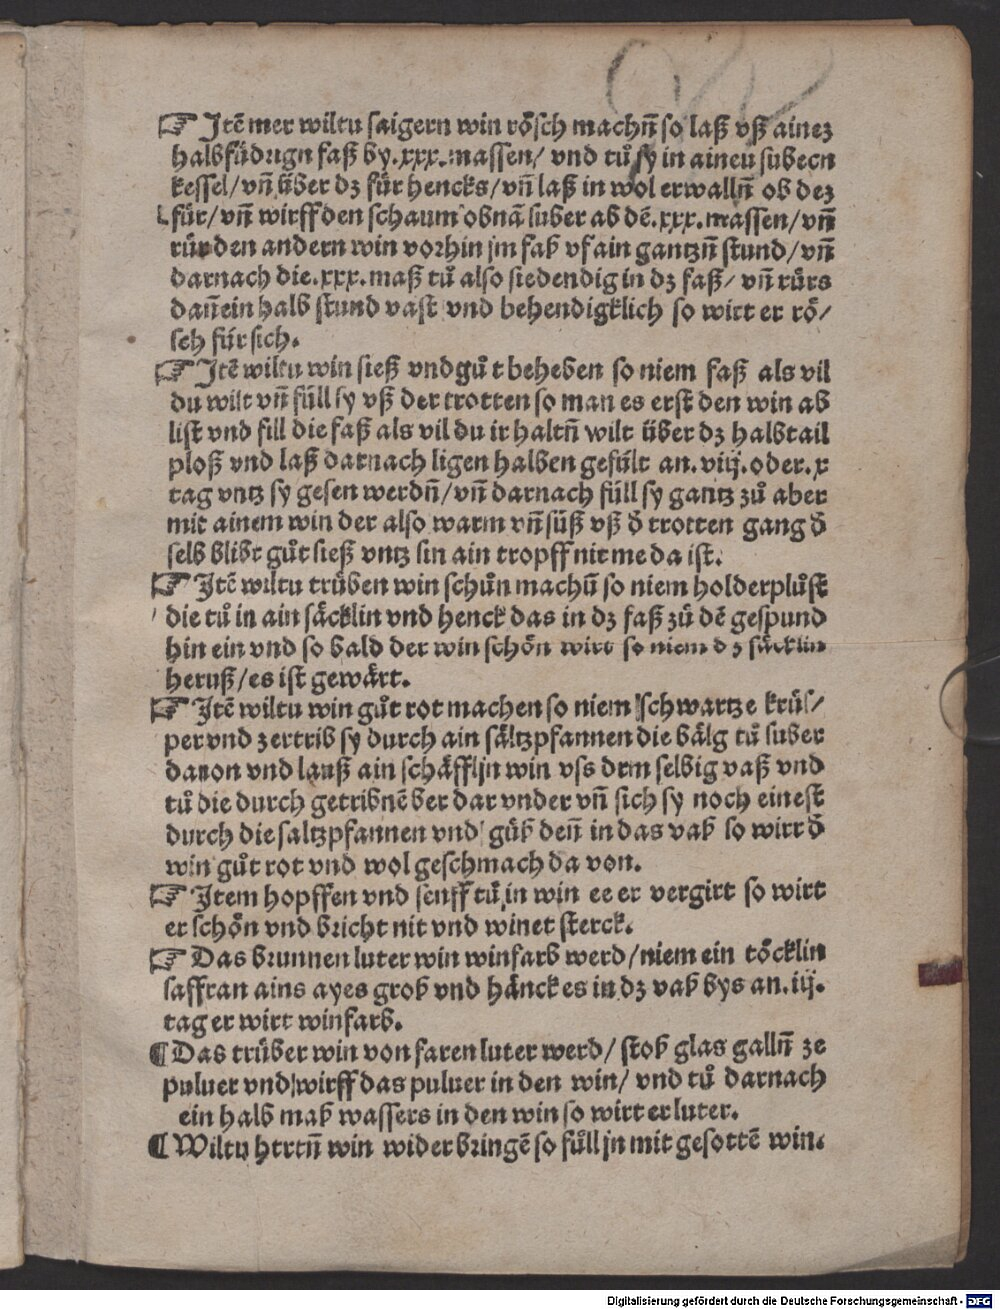 ☞ Jtē mer wiltu saigern win rösch machn̄ so laß vß ainez
halbfüdrign faß by .xxx. massen/ vnd tů sy in ainen subern
kessel/ vn̄ über dz für hencks/ vn̄ laß in wol erwalln̄ ob dez
für/ vn̄ wirff den schaum obnā suber ab dē .xxx. massen/ vn̄
rür den andern win vorhin jm faß vf ain gantzn̄ stund/ vn̄
darnach die .xxx. maß tů also siedendig in dz faß/ vn̄ rürs
dan̄ ein halb stund vast vnd behendigklich so wirt er rö/
sch für sich.
☞ Jtē wiltu win sieß vnd gůt beheben so niem faß als vil
du wilt vn̄ füll sy vß der trotten so man es erst den win ab
list vnd fill die faß als vil du ir haltn̄ wilt über dz halbtail
ploß vnd laß darnach ligen halben gefült an .viij. oder .x
tag vntz sy gesen werdn̄/ vn̄ darnach füll sy gantz zů aber
mit ainem win der also warm vn̄ süß vß d̄ trotten gang d̄
selb blibt gůt sieß vntz sin ain tropff nit me da ist.
☞ Jtē wiltu trüben win schün machn̄ so niem holderplůst
die tů in ain säcklin vnd henck das in dz faß zů dē gespund
hin ein vnd so bald der win schön wirt so niem dz säcklin
heruß/ es ist gewärt.
☞ Jtē wiltu win gůt rot machen so niem schwartze krüs/
per vnd zertrib sy durch ain sältzpfannen die bälg tů suber
dauon vnd lauß ain schäffljn win vss dem selbig vaß vnd
tů die durch getribnē ber dar vnder vn̄ sich sy noch einest
durch die saltzpfannen vnd güß den̄ in das vaß so wirt d̄
win gůt rot vnd wol geschmach da von.
☞ Jtem hopffen vnd senff tů in win ee er vergirt so wirt
er schön vnd bricht nit vnd winet sterck.
☞ Das brunnen luter win winfarb werd/ niem ein töcklin
saffran ains ayes groß vnd hänck es in dz vaß bys an .iij.
tag er wirt winfarb.
¶ Das trüber win von faren luter werd/ stoß glas galln̄ ze
puluer vnd wirff das puluer in den win/ vnd tů darnach
ein halb maß wassers in den win so wirt er luter.
¶ Wiltu hertn̄ win wider bringē so füll jn mit gesottē win.
Digitalisierung gefördert durch die Deutsche Forschungsgemeinschaft - DFG